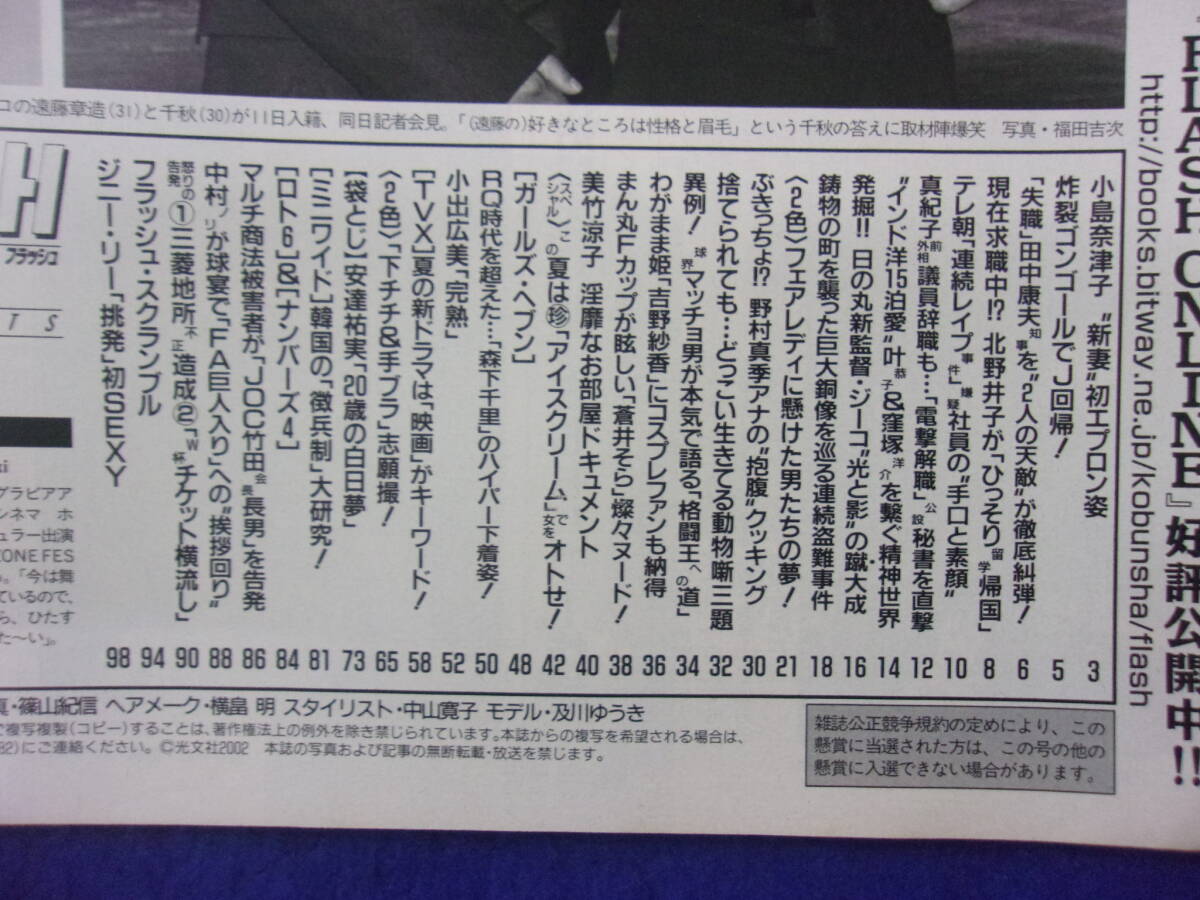 コの遠藤章造(31)と千秋(30)が11日入籍、同日記者会見。「(遠藤の)好きなところは性格と眉毛」という千秋の答えに取材陣爆笑 写真・福田吉次
FLASH ONLINE』好評公開中!!
http://books.bitway.ne.jp/kobunsha/flash
小島奈津子 “新妻”初エプロン姿 3
炸裂ゴンゴールでJ回帰! 5
“失職”田中康夫知事を“2人の天敵”が徹底糾弾! 6
現在求職中!? 北野井子が「ひっそり留学帰国」 8
テレ朝「連続レイプ事件」嫌疑社員の“手口と素顔” 10
真紀子前外相議員辞職も…「電撃解職」公設秘書を直撃 12
“インド洋15泊愛”叶恭子&窪塚洋介を繋ぐ精神世界 14
発掘!! 日の丸新監督・ジーコ“光と影”の蹴大成 16
鋳物の町を襲った巨大銅像を巡る連続盗難事件 18
〈2色〉フェアレディに懸けた男たちの夢! 21
ぶきっちょ!? 野村真季アナの“抱腹”クッキング 30
捨てられても…どっこい生きてる動物噺三題 32
異例! 球界マッチョ男が本気で語る「格闘王への道」 34
わがまま姫「吉野紗香」にコスプレファンも納得 36
まん丸Fカップが眩しい「蒼井そら」燦々ヌード! 38
美竹涼子 淫靡なお部屋ドキュメント 40
〈スペシャル〉この夏は㊙「アイスクリーム」で女をオトせ! 42
[ガールズ・ヘブン] 48
RQ時代を超えた…「森下千里」のハイパー下着姿! 50
小出広美「完熟」 52
[TVX]夏の新ドラマは「映画」がキーワード! 58
〈2色〉「下チチ&手ブラ」志願撮! 65
[袋とじ]安達祐実「20歳の白日夢」 73
[ミニワイド]韓国の「徴兵制」大研究! 81
[ロト6]&[ナンバーズ4] 84
マルチ商法被害者が「JOC竹田会長長男」を告発 86
中村ノリが球宴で「FA巨人入り」への“挨拶回り” 88
怒りの告発①三菱地所不正造成②「W杯チケット横流し」 90
フラッシュ・スクランブル 94
ジニー・リー「挑発」初SEXY 98
H
フラッシュ
TS
ki
グラビアア
シネマ ホ
ュラー出演
ZONE FES
。「今は舞
ているので、
ら、ひたす
た〜い」。
真・篠山紀信 ヘアメーク・横畠 明 スタイリスト・中山寛子 モデル・及川ゆうき
で複写複製(コピー)することは、著作権法上の例外を除き禁じられています。本誌からの複写を希望される場合は、
82)にご連絡ください。©光文社2002 本誌の写真および記事の無断転載・放送を禁じます。
雑誌公正競争規約の定めにより、この
懸賞に当選された方は、この号の他の
懸賞に入選できない場合があります。